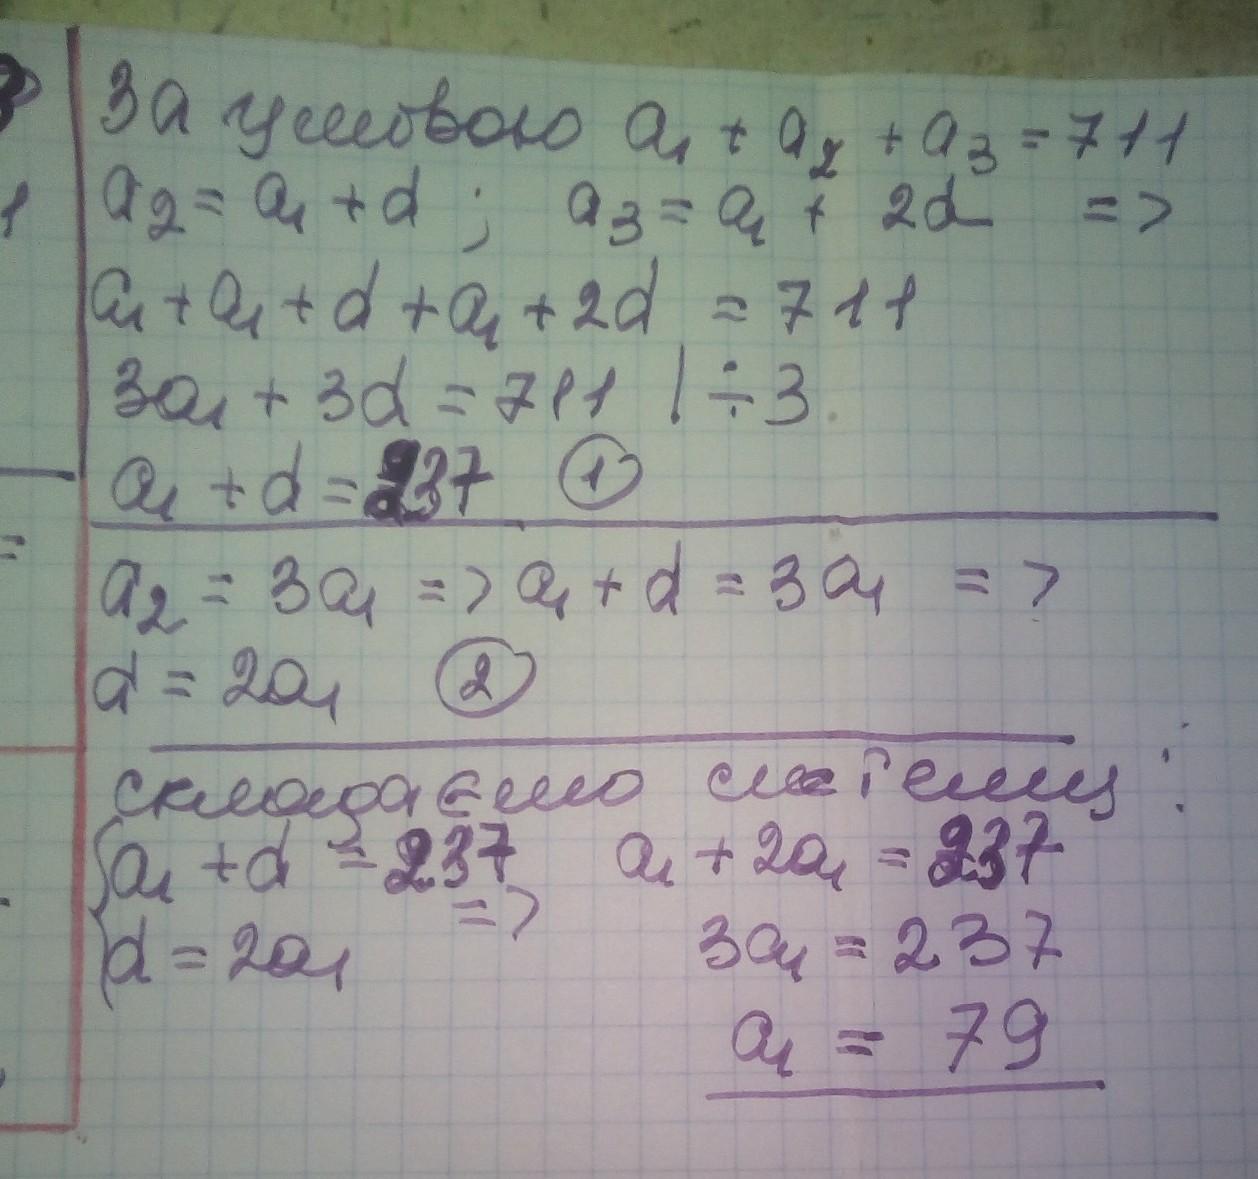 За умовою a₁ + a₂ + a₃ = 711
a₂ = a₁ + d ; a₃ = a₁ + 2d =>
a₁ + a₁ + d + a₁ + 2d = 711
3a₁ + 3d = 711 | ÷ 3
a₁ + d = 237 ①
a₂ = 3a₁ => a₁ + d = 3a₁ =>
d = 2a₁ ②
складаємо систему :
{ a₁ + d = 237 => a₁ + 2a₁ = 237
d = 2a₁ 3a₁ = 237
a₁ = 79